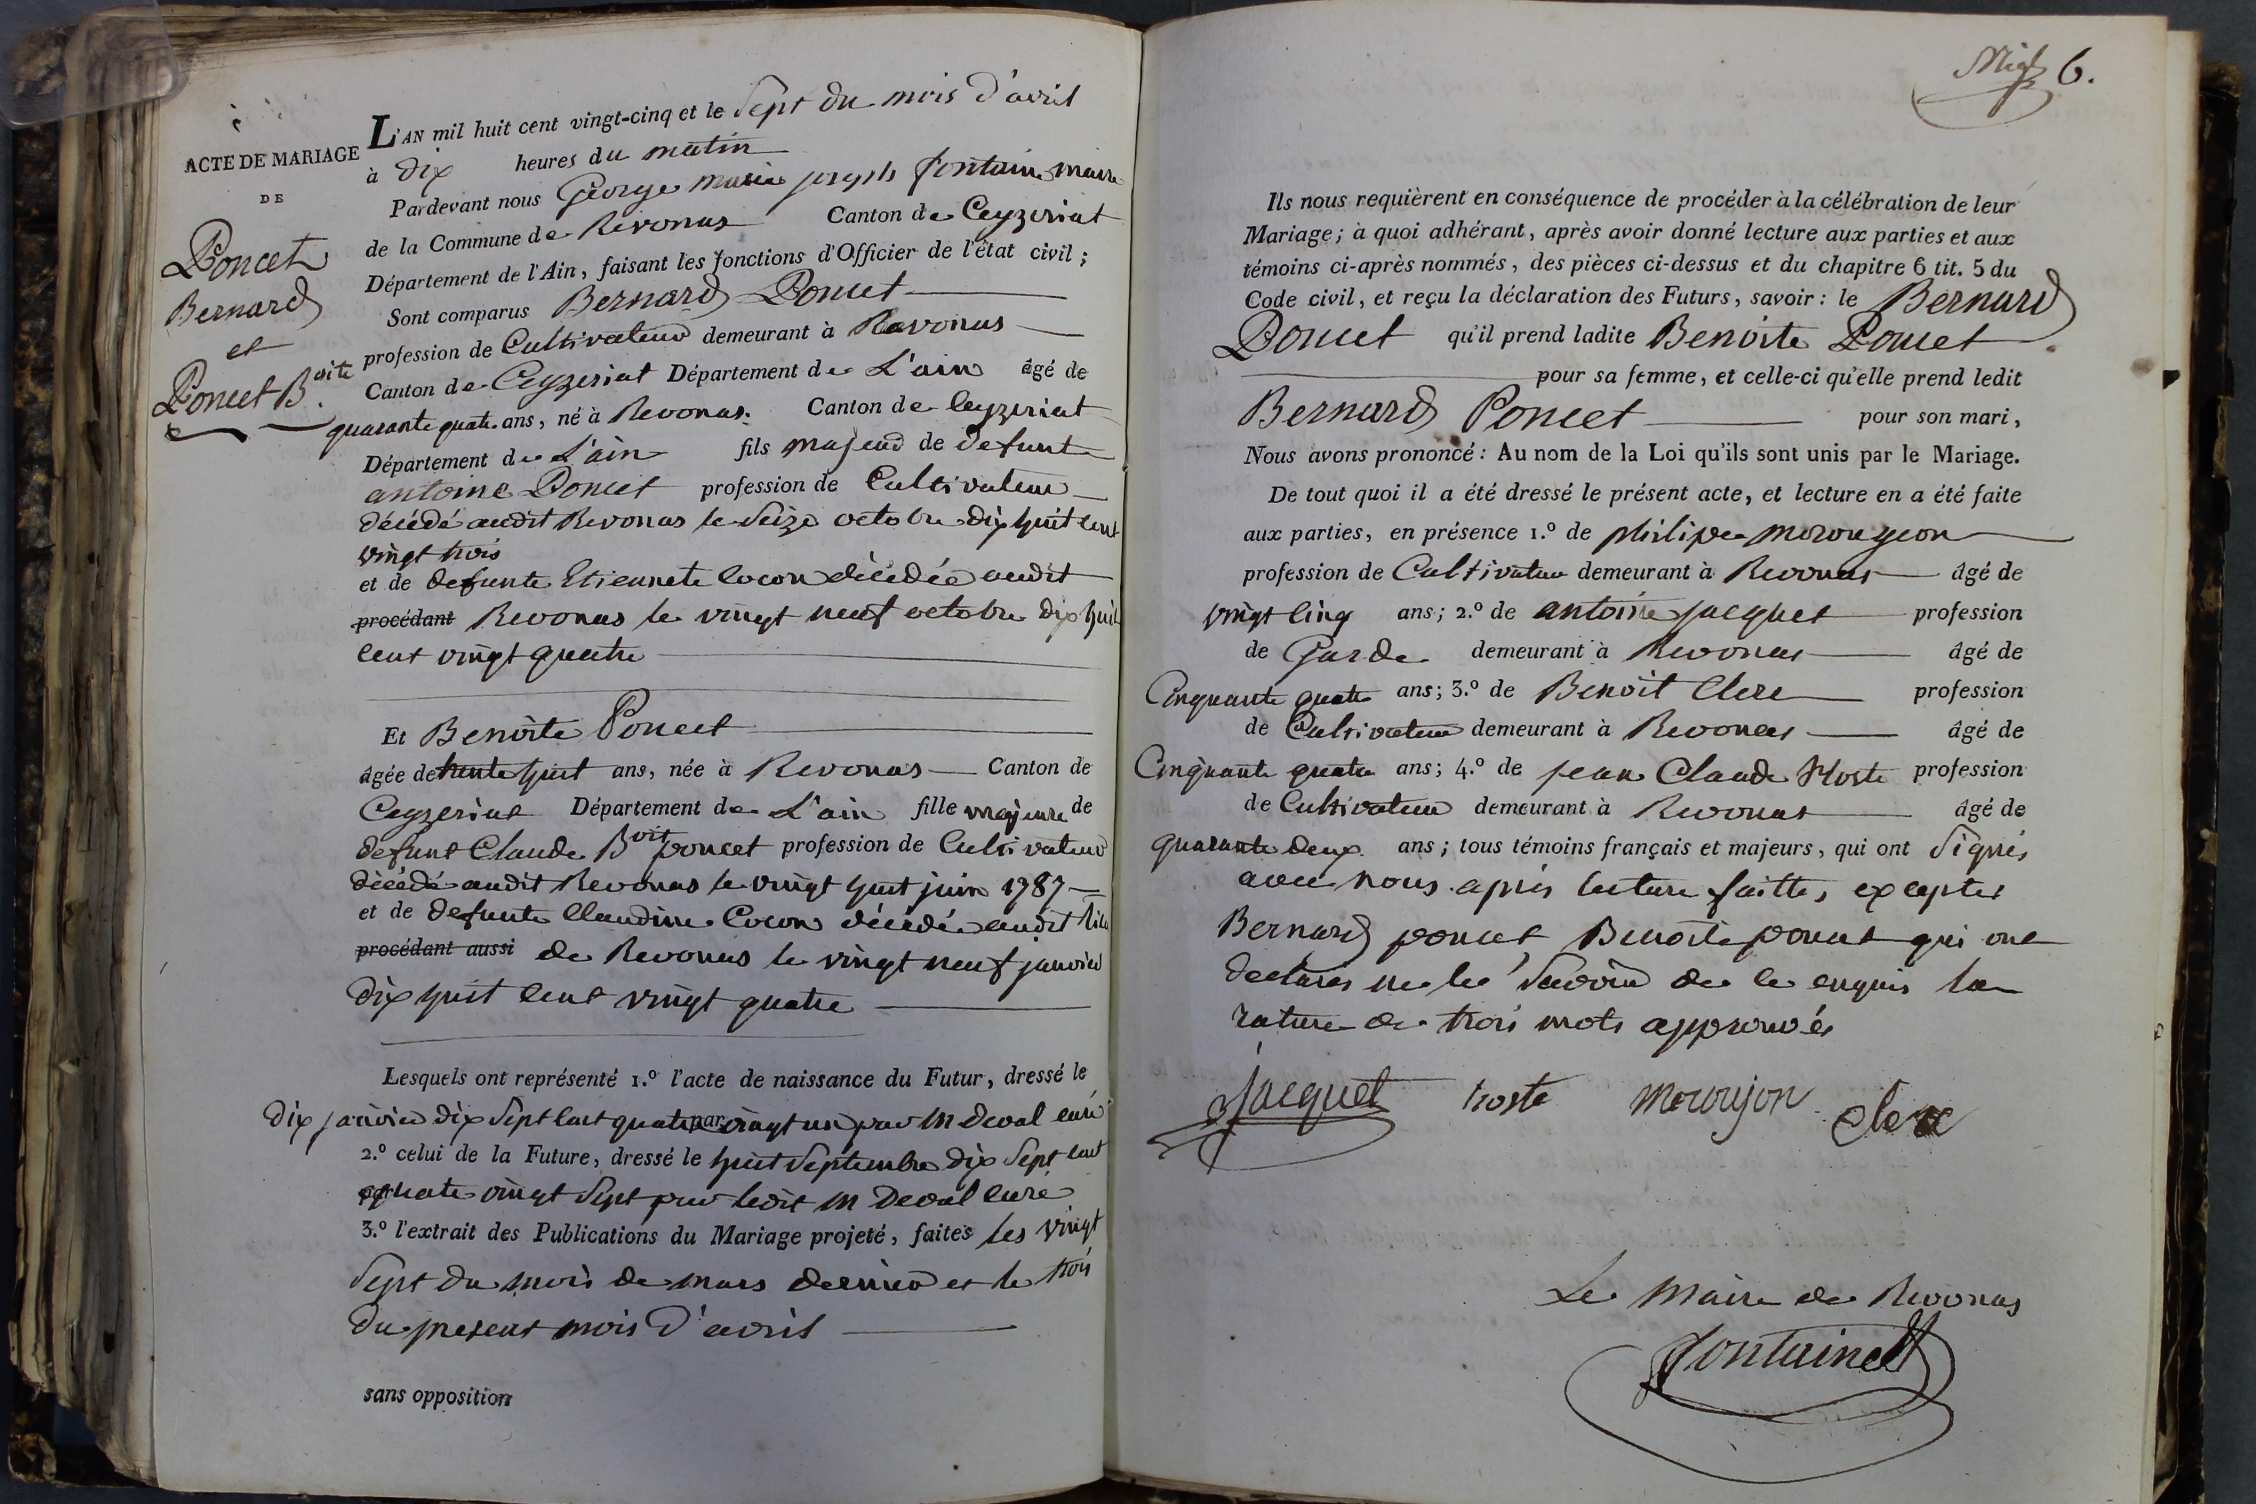 ACTE DE MARIAGE
DE
Poncet
Bernard
et
Poncet B.oite
L'AN mil huit cent vingt-cinq et le Sept du mois d'avril
à dix heures du matin
Pardevant nous George marie joseph fontaine maire
de la Commune de Revonas Canton de Ceyzeriat
Département de l'Ain, faisant les fonctions d'Officier de l'état civil ;
Sont comparus Bernard Poncet
profession de Cultivateur demeurant à Revonas
Canton de Ceyzeriat Département de L'ain âgé de
quarante quatre ans, né à Revonas. Canton de Ceyzeriat
Département de L'ain fils majeur de defunt
antoine Poncet profession de Cultivateur
décédé audit Revonas le Seize octobre dix huit cent
vingt trois
et de defunte Etiennete Cocon décédée audit
procédant Revonas le vingt neuf octobre dix huit
cent vingt quatre
Et Benoite Poncet
âgée de trente huit ans, née à Revonas Canton de
Ceyzeriat Département de L'ain fille majeure de
defunt Claude B.oit poncet profession de Cultivateur
décédé audit Revonas le vingt huit juin 1787
et de defunte Claudine Cocon décédée audit lieu
procédant aussi de Revonas le vingt neuf janvier
dix huit cent vingt quatre
Lesquels ont représenté 1.º l'acte de naissance du Futur, dressé le
dix janvier dix Sept cent quatre par vingt un par M Deval curé
2.º celui de la Future, dressé le huit Septembre dix Sept cent
quatre vingt Sept par ledit M Deval curé
3.º l'extrait des Publications du Mariage projeté, faites les vingt
Sept du mois de mars dernier et le trois
du present mois d'avril
sans opposition
6.
Ils nous requièrent en conséquence de procéder à la célébration de leur
Mariage ; à quoi adhérant, après avoir donné lecture aux parties et aux
témoins ci-après nommés, des pièces ci-dessus et du chapitre 6 tit. 5 du
Code civil, et reçu la déclaration des Futurs, savoir : le Bernard
Poncet qu'il prend ladite Benoite Poncet
pour sa femme, et celle-ci qu'elle prend ledit
Bernard Poncet pour son mari,
Nous avons prononcé : Au nom de la Loi qu'ils sont unis par le Mariage.
De tout quoi il a été dressé le présent acte, et lecture en a été faite
aux parties, en présence 1.º de philipe morougeon
profession de Cultivateur demeurant à Revonas âgé de
vingt Cinq ans ; 2.º de antoine jacquet profession
de Garde demeurant à Revonas âgé de
Cinquante quatre ans ; 3.º de Benoit Clerc profession
de Cultivateur demeurant à Revonas âgé de
Cinquante quatre ans ; 4.º de jean Claude Hoste profession
de Cultivateur demeurant à Revonas âgé de
quarante deux ans ; tous témoins français et majeurs, qui ont Signés
avec nous après lecture faitte, exceptés
Bernard poncet Benoite poncet qui ont
declarés ne le Savoir de ce enquis la
rature de trois mots approuvés
Jacquet hoste Moroujon Clerc
Le Maire de Revonas
Fontaine